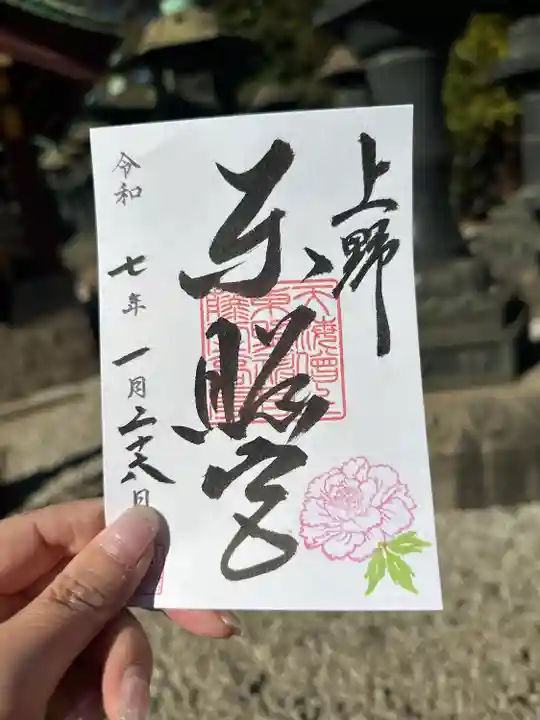 上野
東照宮
令和 七年 一月二十八日